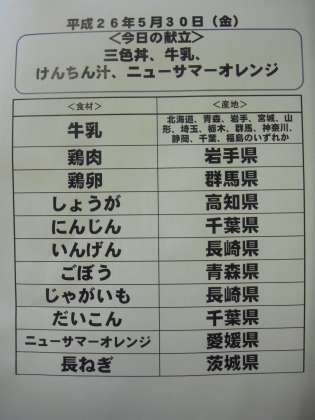 平成26年5月30日（金）
＜今日の献立＞
三色丼、牛乳、
けんちん汁、ニューサマーオレンジ
＜食材＞ ＜産地＞
牛乳 北海道、青森、岩手、宮城、山
形、埼玉、栃木、群馬、神奈川、
静岡、千葉、福島のいずれか
鶏肉 岩手県
鶏卵 群馬県
しょうが 高知県
にんじん 千葉県
いんげん 長崎県
ごぼう 青森県
じゃがいも 長崎県
だいこん 千葉県
ニューサマーオレンジ 愛媛県
長ねぎ 茨城県